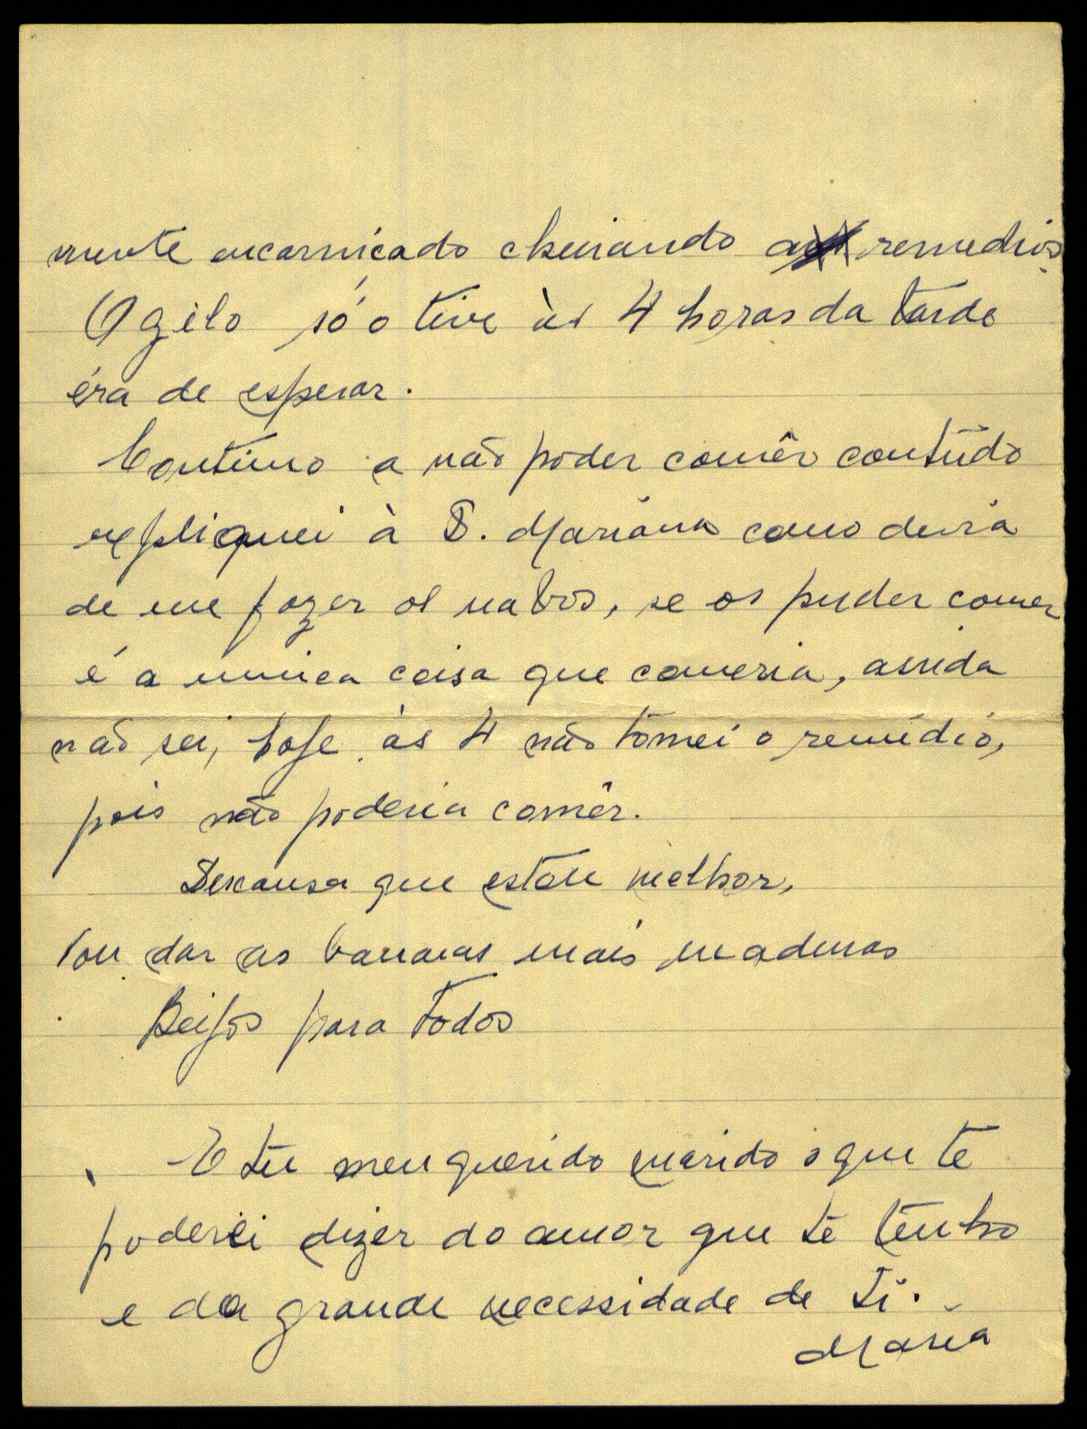 mente encarnicado cheirando a remedios
O gêlo só o tive às 4 horas da tarde
éra de esperar.
Continuo a não poder comêr contúdo
expliquei à D. Mariana como devia
de me fazer os nabos, se os puder comer
é a unica coisa que comeria, ainda
não sei, hoje às 4 não tomei o remédio,
pois não poderia comêr.
Descansa que estou melhor,
Vou dar as bananas mais maduras
Beijos para todos
E tu meu querido marido o que te
poderei dizer do amor que te tenho
e da grande necessidade de ti.
Maria